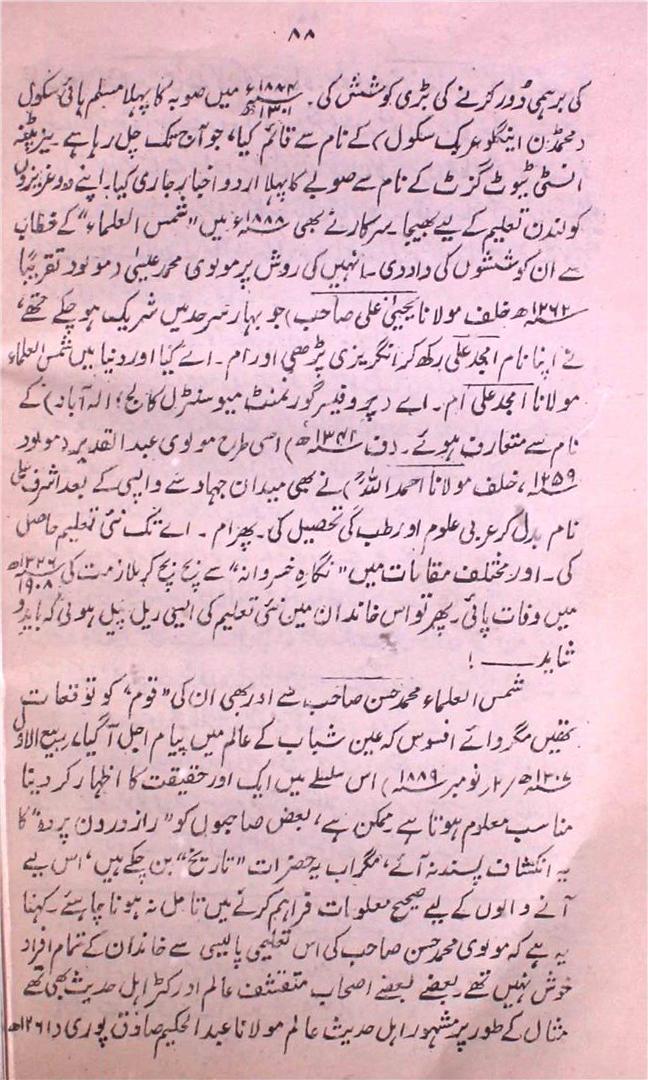 ۸۸
کی برہمی دُور کرنے کی بڑی کوشش کی۔ ۱۸۸۴ء ۱۳۰۱ھ میں صوبہ کا پہلا مسلم ہائی سکول
(محمڈن اینگلو عربک سکول) کے نام سے قائم کیا، جو آج تک چل رہا ہے۔ نیز پٹنہ
انسٹی ٹیوٹ گزٹ کے نام سے صوبے کا پہلا اردو اخبار جاری کیا۔ اپنے دو عزیزوں
کو لندن تعلیم کے لیے بھیجا۔ سرکار نے بھی ۱۸۸۸ء میں "شمس العلماء" کے خطاب
سے ان کوششوں کی داد دی۔ انہیں کی روش پر مولوی محمد عیسیٰ (مولود تقریباً
۱۲۶۲ھ خلف مولانا یحییٰ علی صاحب) جو بہار سرحد میں شریک ہو چکے تھے،
نے اپنا نام امجد علی رکھ کر انگریزی پڑھی اور ام۔ اے کیا اور دنیا میں شمس العلماء
مولانا امجد علی ام۔ اے (پروفیسر گورنمنٹ میو سنٹرل کالج؛ الہ آباد) کے
نام سے متعارف ہوئے۔ (ف ۱۳۴۲ھ) اسی طرح مولوی عبد القدیر (مولود
۱۲۵۹ھ، خلف مولانا احمد اللہؒ) نے بھی میدان جہاد سے واپسی کے بعد اشرف علی
نام بدل کر عربی علوم اور طب کی تحصیل کی۔ پھر ام۔ اے تک نئی تعلیم حاصل
کی۔ اور مختلف مقامات میں "نگارہ خسروانہ" سے بچ بچ کر ملازمت کی ۱۳۲۶ھ ۱۹۰۸
میں وفات پائی۔ پھر تو اس خاندان میں نئی تعلیم کی ایسی ریل پیل ہوئی کہ باید و
شاید ـــــ !
شمس العلماء محمد حسن صاحب سے اور بھی ان کی "قوم" کو توقعات
تھیں مگر وائے افسوس کہ عین شباب کے عالم میں پیام اجل آ گیا، ربیع الاول
۱۳۰۷ھ /۲ نومبر ۱۸۸۹ء) اس سلسلے میں ایک اور حقیقت کا اظہار کر دینا
مناسب معلوم ہوتا ہے ممکن ہے، بعض صاحبوں کو "راز درون پردہ" کا
یہ انکشاف پسند نہ آئے، مگر اب یہ حضرات "تاریخ" بن چکے ہیں، اس لیے
آنے والوں کے لیے صحیح معلومات فراہم کرنے میں تامل نہ ہونا چاہئے۔ کہنا
یہ ہے کہ مولوی محمد حسن صاحب کی اس تعلیمی پالیسی سے خاندان کے تمام افراد
خوش نہیں تھے۔ بعضے بعضے اصحاب متقشف عالم اور کٹر اہل حدیث بھی تھے
مثال کے طور پر مشہور اہل حدیث عالم مولانا عبد الحکیم صادق پوری (۱۲۶۱ھ